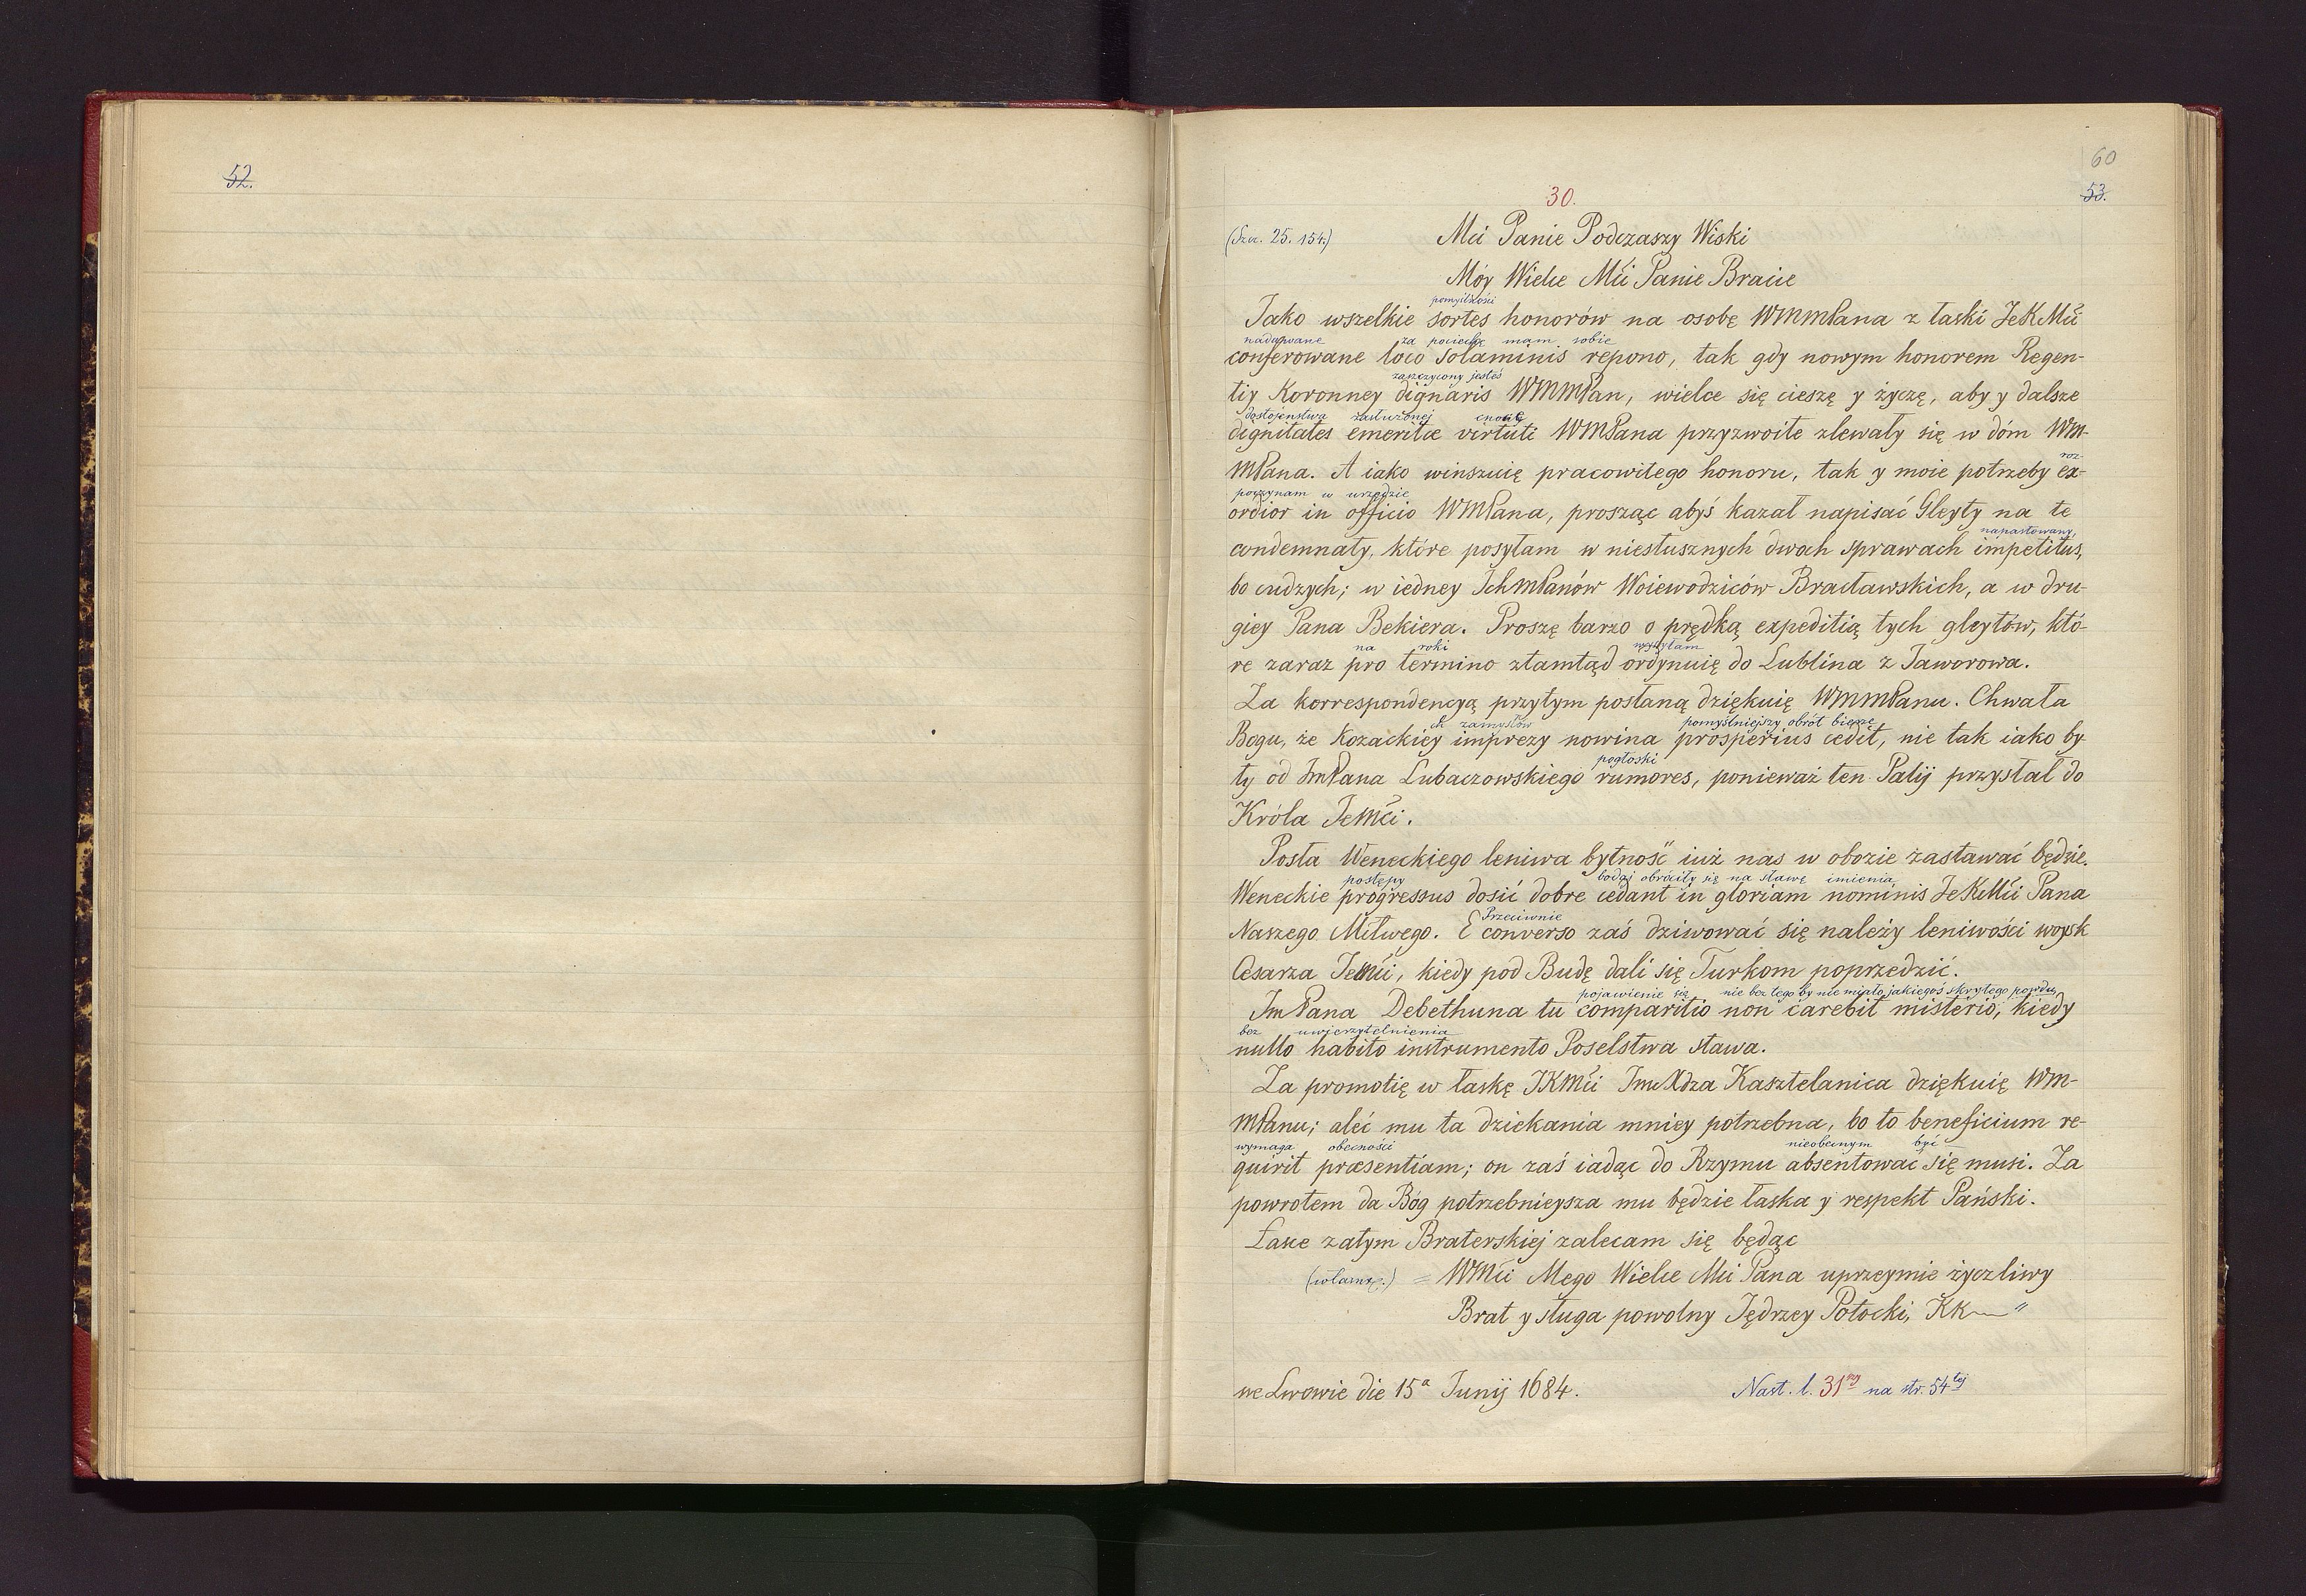 52.
60
53.
30.
(Szcz. 25. 154.)
Mci Panie Podczaszy Wiski
Móy Wielce Mći Panie Bracie
pomyślności
Jako wszelkie sortes honorów na osobę WMmPana z łaski JeKMći
nadawane za pociechę mam sobie
conferowane loco solaminis repono, tak gdy nowym honorem Regen-
zaszczycony jesteś
tiy Koronney dignaris WMMPan, wielce się cieszę y życzę, aby y dalsze
dostojeństwa zasłużonej cnocie
dignitates emeritæ virtuti WMPana przyzwoite zlewały się w dóm WM-
roz-
MPana. A iako winszuię pracowitego honoru, tak y moie potrzeby ex-
poczynam w urzędzie
ordior in officio WMPana, prosząc abyś kazał napisać Gleyty na te
napastowany,
condemnaty, które posyłam w niesłusznych dwoch sprawach impetitus,
bo cudzych; w iedney IchMPanów Woiewodziców Bracławskich, a w dru-
giey Pana Bekiera. Proszę barzo o prędką expeditią tych gleytów, któ-
na roki wysyłam
re zaraz pro termino ztamtąd ordynuię do Lublina z Jaworowa.
Za korrespondencyą przytym posłaną dziękuię WMmPanu. Chwała
ch zamysłów pomyślniejszy obrót bierze
Bogu, że Kozackiey imprezy nowina prosperius cedit, nie tak iako by-
pogłoski
ły od ImPana Lubaczowskiego rumores, ponieważ ten Palij przystał do
Króla JeMći.
Posła Weneckiego leniwa bytność iuż nas w obozie zastawać będzie.
postępy bodaj obróciły się na sławę imienia
Weneckie progressus dosić dobre cedant in gloriam nominis JeKMći Pana
Przeciwnie
Naszego Miłwego. E converso zaś dziwować się należy leniwości woysk
Cesarza JeMći, kiedy pod Budę dali się Turkom poprzedzić.
pojawienie się nie bez tego by nie miało jakiegoś skrytego powdu,
ImPana Debethuna tu comparitio non carebit misterio, kiedy
bez uwierzytelnienia
nullo habito instrumento Poselstwa stawa.
Za promotię w łaskę JKMći ImXdza Kasztelanica dziękuię WM-
MPanu; aleć mu ta dziekania mniey potrzebna, bo to beneficium re-
wymaga obecności nieobecnym być
quirit præsentiam; on zaś iadąc do Rzymu absentować się musi. Za
powrotem da Bóg potrzebnieysza mu będzie łaska y respekt Pański.
Łasce zatym Braterskiej zalecam się będąc
(własnrę.) = WMći Mego Wielce Mći Pana uprzeymie życzliwy
Brat y sługa powolny Jędrzey Potocki, KK
we Lwowie die 15a Junij 1684.
Nast. l. 31szy na str. 54tej